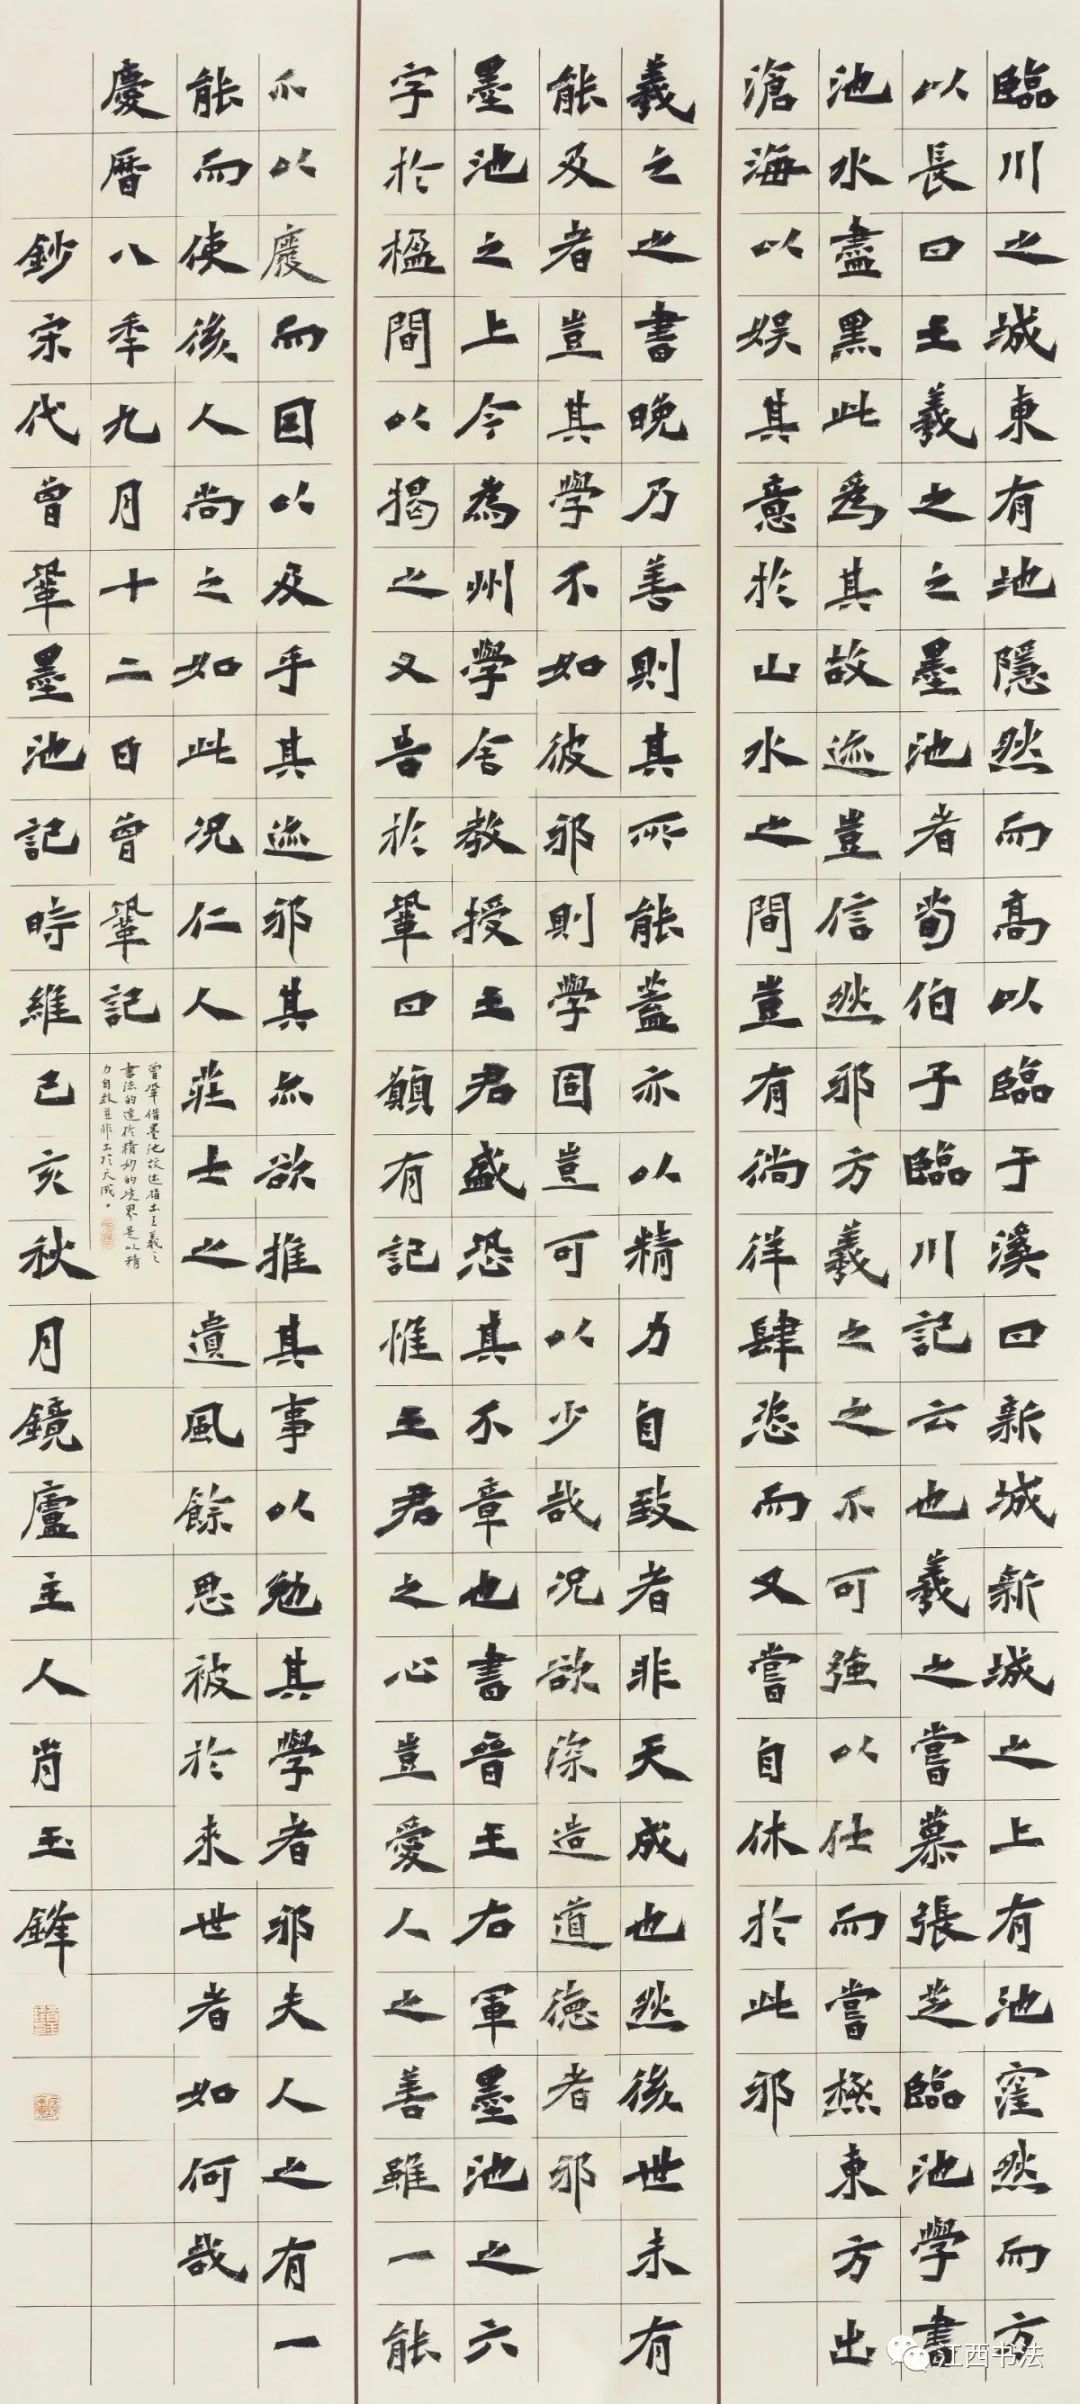 臨川之城東有地隱然而高以臨于溪曰新城新城之上有池窪然而方
以長曰王羲之之墨池者荀伯子臨川記云也羲之嘗慕張芝臨池學書
池水盡黑此爲其故迹豈信然邪方羲之之不可強以仕而嘗極東方出
滄海以娛其意於山水之間豈有徜徉肆恣而又嘗自休於此邪
羲之之書晚乃善則其所能蓋亦以精力自致者非天成也然後世未有
能及者豈其學不如彼邪則學固豈可以少哉況欲深造道德者邪
墨池之上今為州學舍教授王君盛恐其不章也書晉王右軍墨池之六
字於楹間以揭之又告於鞏曰願有記惟王君之心豈愛人之善雖一能
不以廢而因以及乎其迹邪其亦欲推其事以勉其學者邪夫人之有一
能而使後人尚之如此況仁人莊士之遺風餘思被於來世者如何哉
慶曆八年九月十二日曾鞏記
曾鞏借墨池故迹指出王羲之
書法的達於精妙的境界是以精
力自致並非出於天成。
鈔宋代曾鞏墨池記時維己亥秋月鏡廬主人肖玉鋒
江西书法